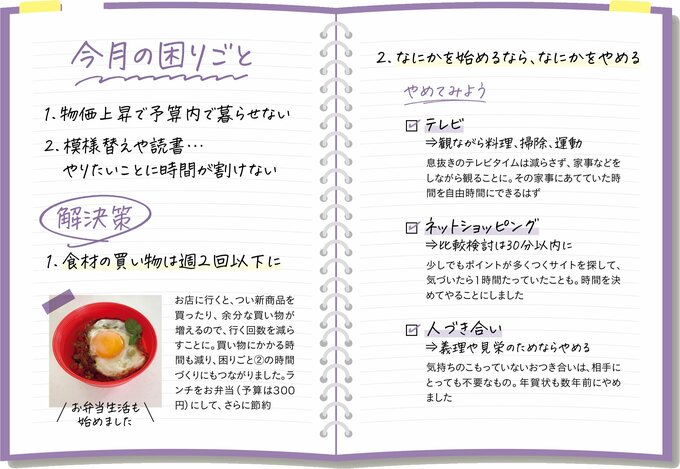 今月の困りごと
1. 物価上昇で予算内で暮らせない
2. 模様替えや読書…
やりたいことに時間が割けない
解決策
1. 食材の買い物は週2回以下に
お店に行くと、つい新商品を
買ったり、余分な買い物が
増えるので、行く回数を減ら
すことに。買い物にかかる時
間も減り、困りごと②の時間
づくりにもつながりました。ラ
ンチをお弁当（予算は300
円）にして、さらに節約
お弁当生活も
始めました
2. なにかを始めるなら、なにかをやめる
やめてみよう
テレビ
⇒観ながら料理、掃除、運動
息抜きのテレビタイムは減らさず、家事などを
しながら観ることに。その家事にあてていた時
間を自由時間にできるはず
ネットショッピング
⇒比較検討は30分以内に
少しでもポイントが多くつくサイトを探して、
気づいたら1時間たっていたことも。時間を
決めてやることにしました
人づき合い
⇒義理や見栄のためならやめる
気持ちのこもっていないおつき合いは、相手に
とっても不要なもの。年賀状も数年前にやめ
ました